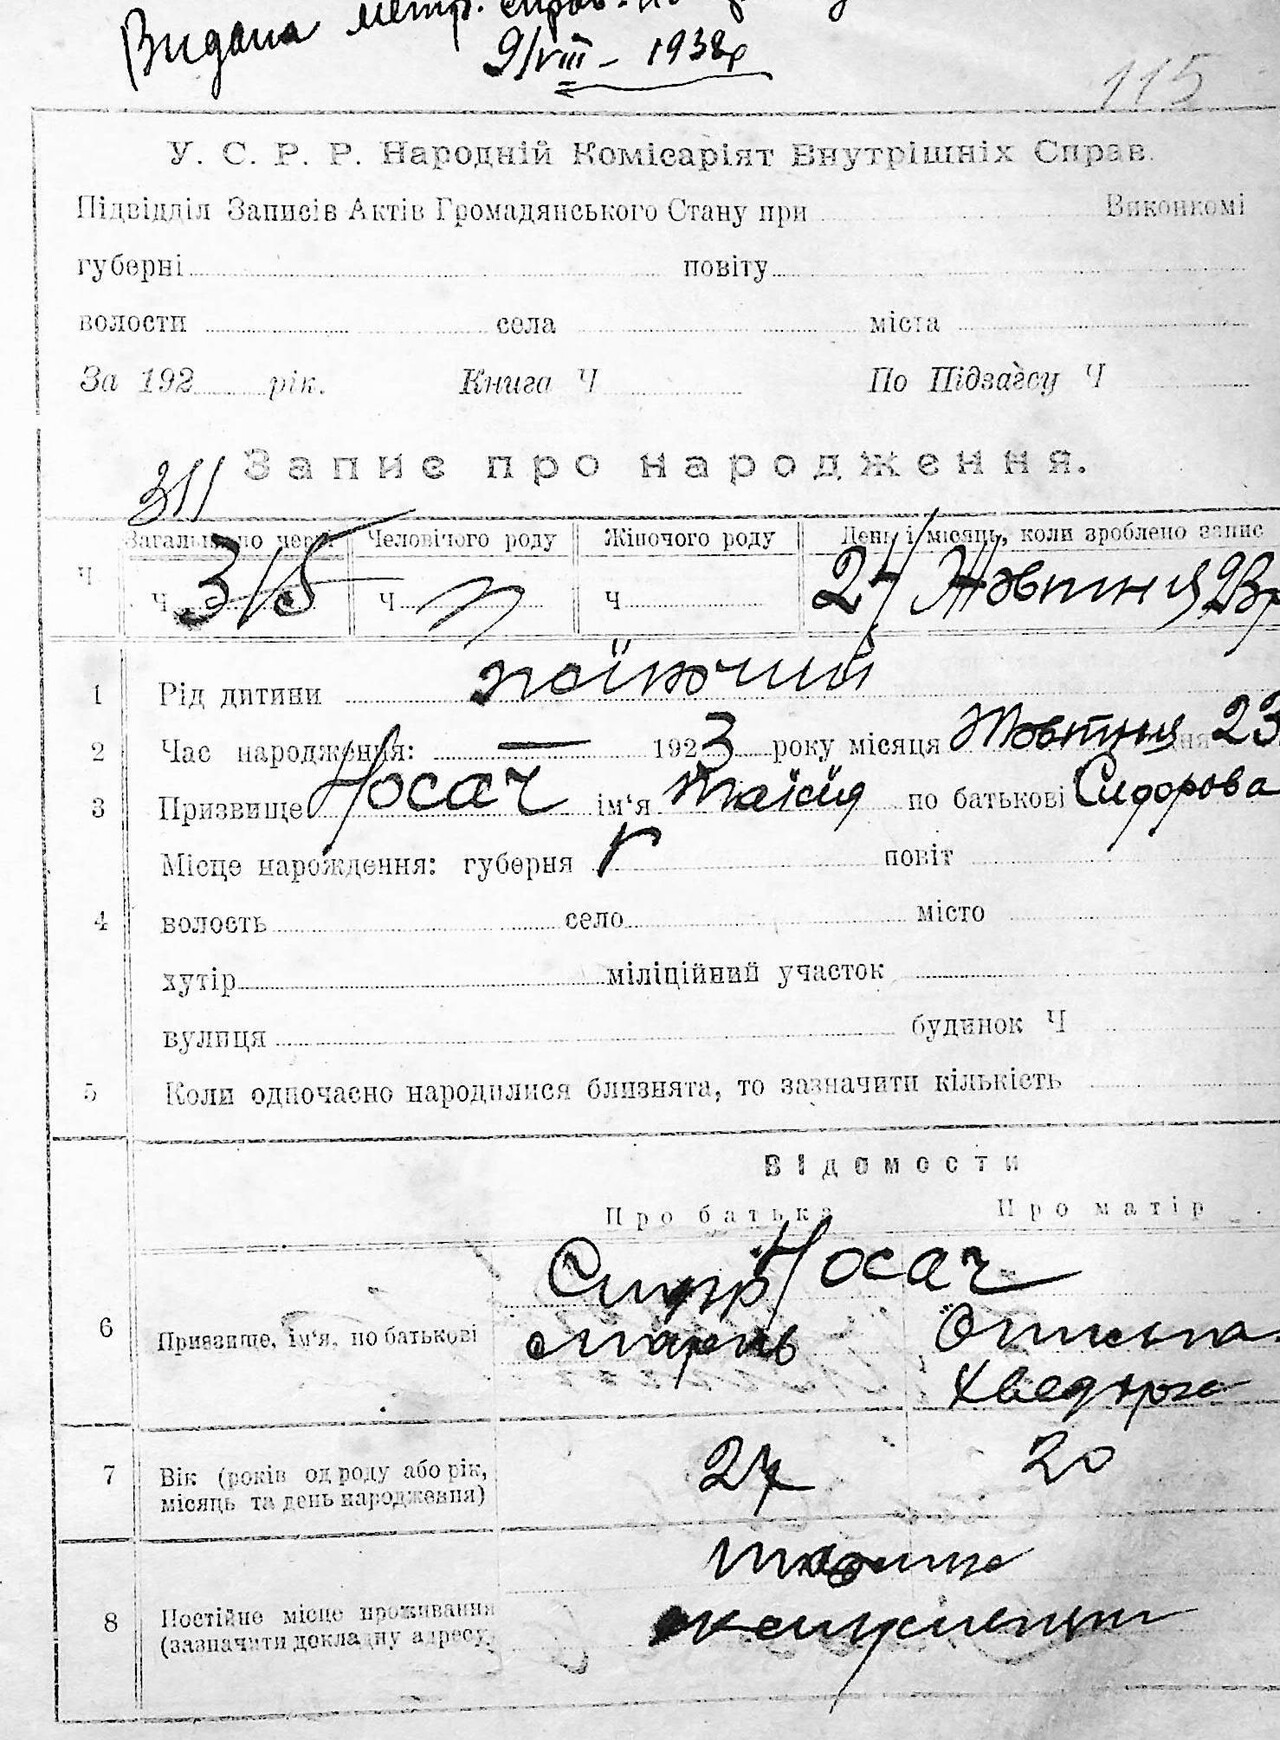 Видана метр.
9/VIII – 1938р
115
У. С. Р. Р. Народній Комісаріят Внутрішніх Справ.
Підвідділ Записів Актів Громадянського Стану при Виконкомі
губерні повіту
волости села міста
За 192 рік. Книга Ч По Підзагсу Ч
311 Запис про народження.
Загальн. по черзі Человічого роду Жіночого роду День і місяць, коли зроблено запис
Ч Ч 315 Ч Ч 24/ Жовтня 23р
1 Рід дитини жіночий
2 Час народження: — 1923 року місяця Жовтня дня 23
3 Призвище Носач ім‘я Таїсія по батькові Сидорова
Місце нарождення: губерня повіт
4 волость село місто
хутір міліційний участок
вулиця будинок Ч
5 Коли одночасно народилися близнята, то зазначити кількість
Відомости
Про батька Про матір
Носач
Сидор
6 Призвище, ім‘я, по батькові
Хведорова
7 Вік (років од роду або рік, 27 20
місяць та день народження)
8 Постійне місце проживання
(зазначити докладну адресу)